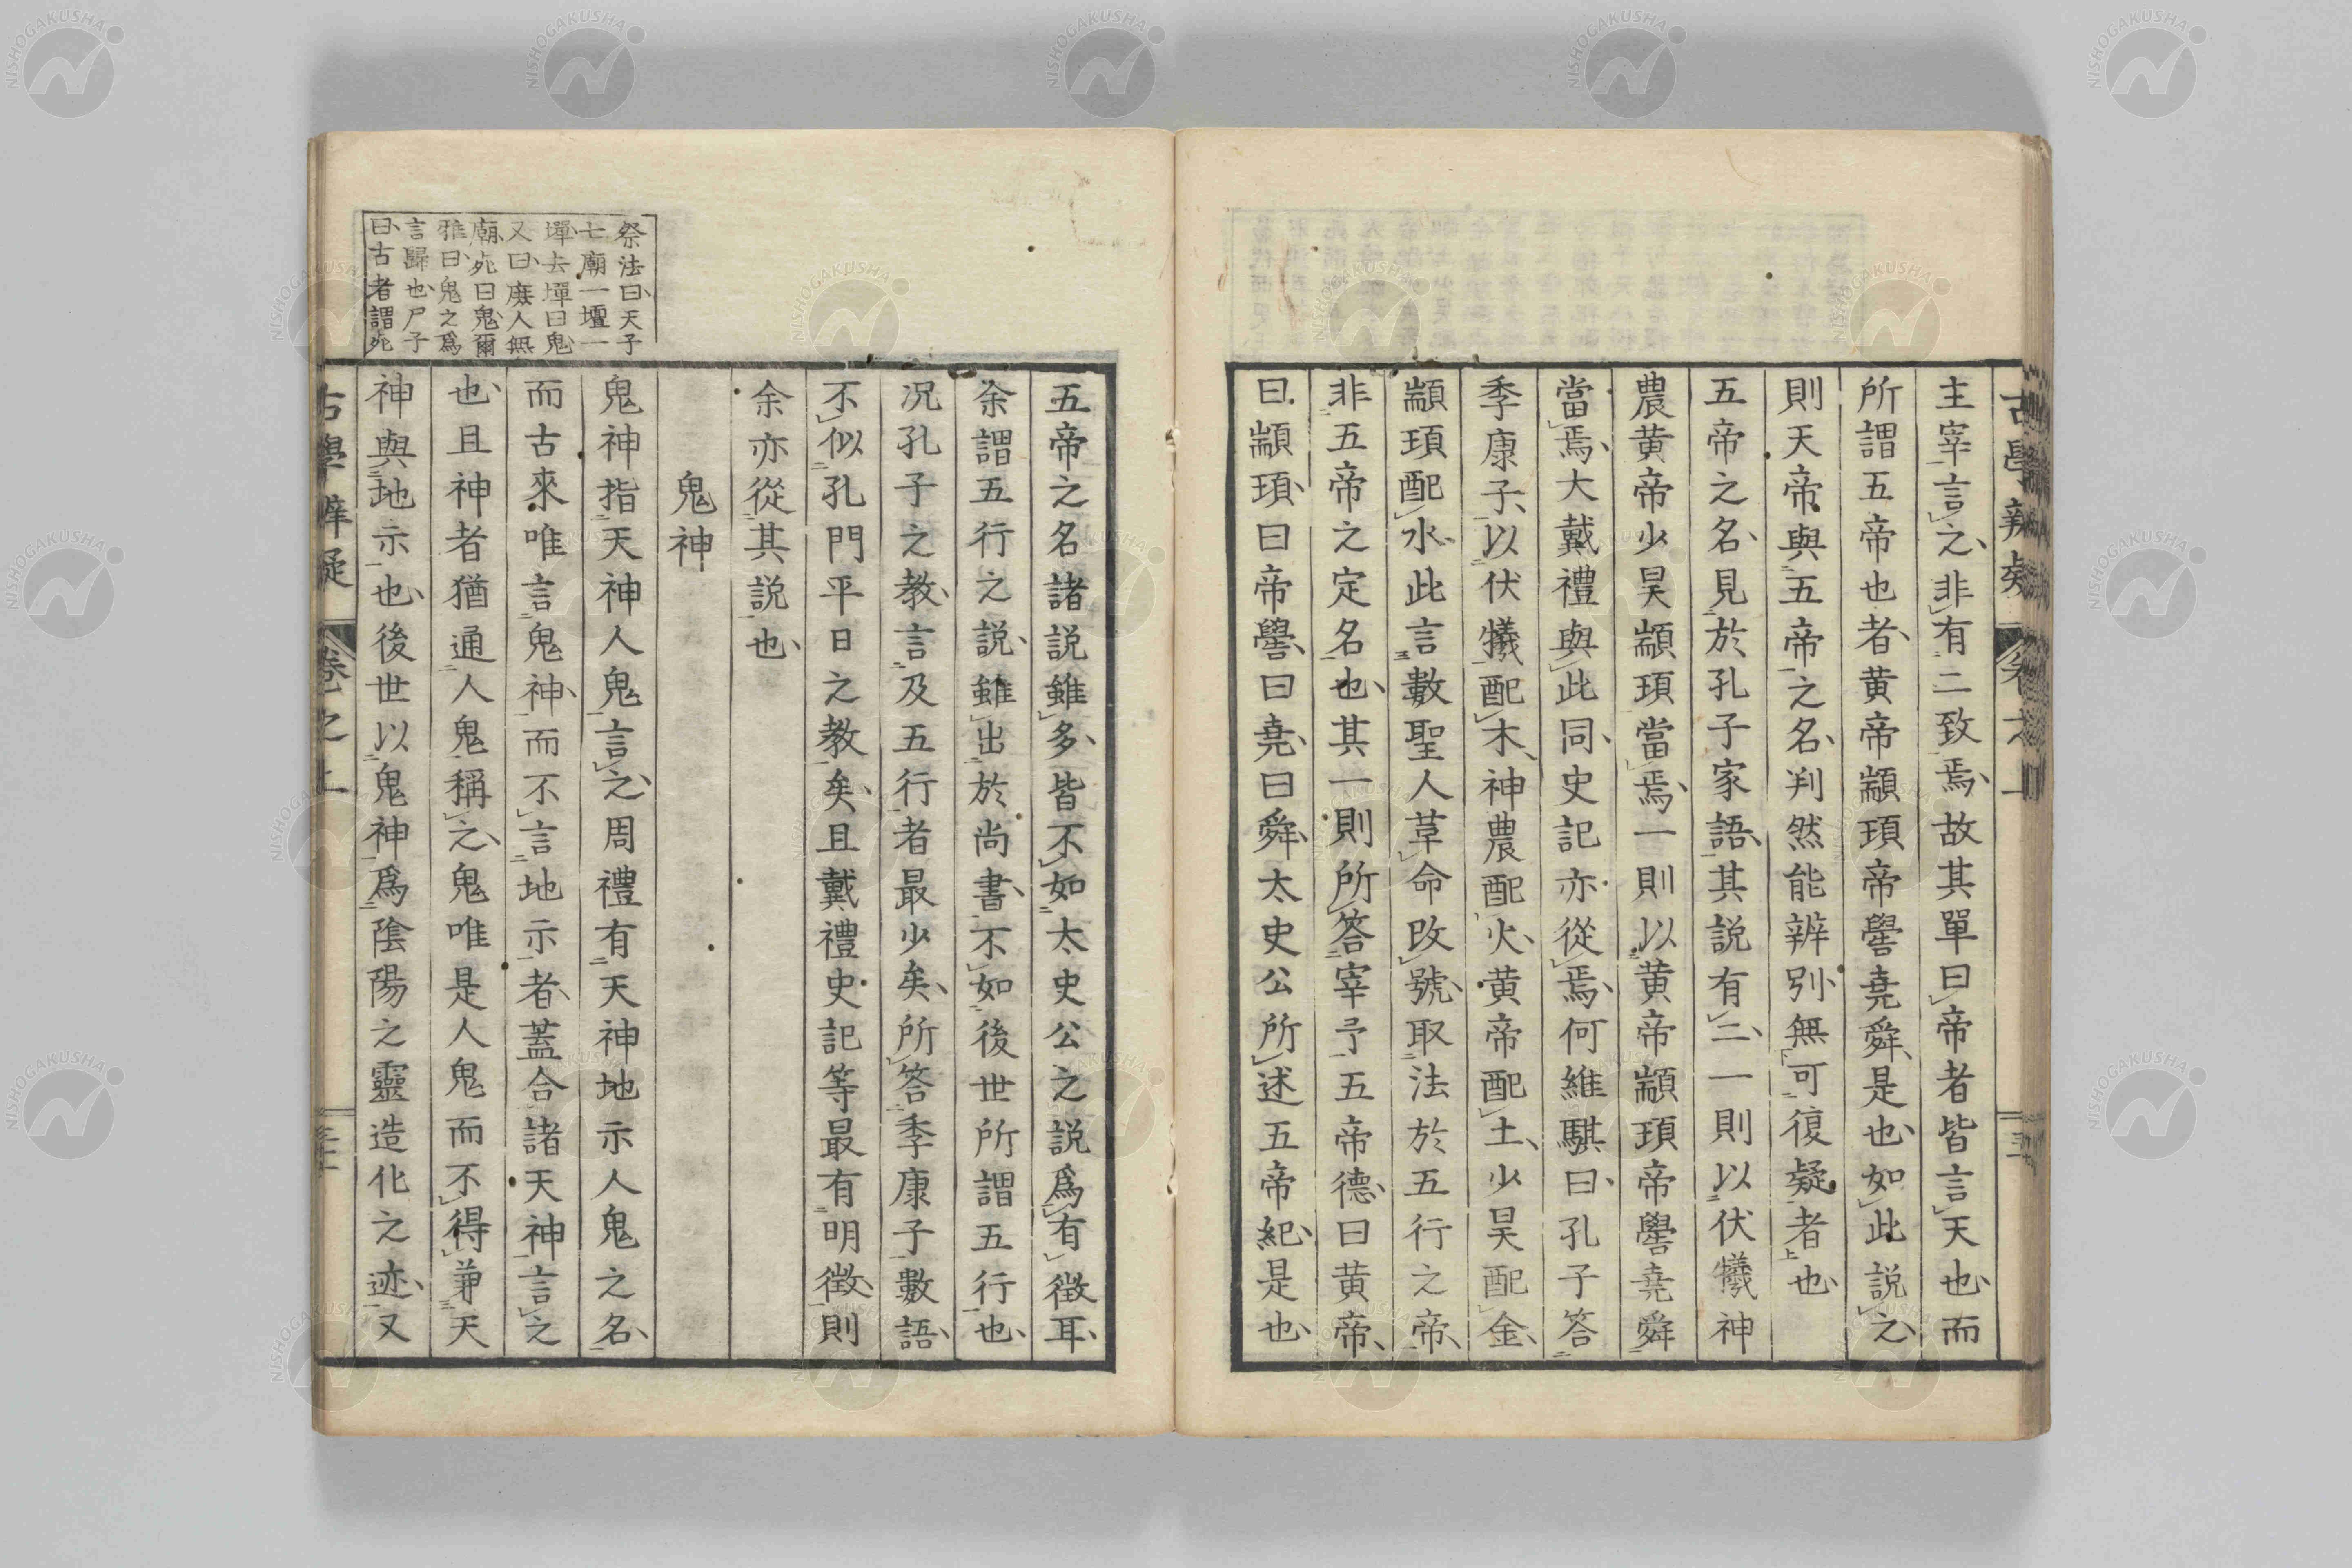 主宰言之非有二致焉故其單曰帝者皆言天也而
所謂五帝也者黄帝顓頊帝嚳堯舜是也如此説之
則天帝與五帝之名判然能辨別無可復疑者也
五帝之名見於孔子家語其説有二一則以伏犧神
農黄帝少昊顓頊當焉一則以黄帝顓頊帝嚳堯舜
當焉大戴禮與此同史記亦從焉何維騏曰孔子答
季康子以伏犧配木神農配火黄帝配土少昊配金
顓頊配水此言數聖人革命改號取法於五行之帝
非五帝之定名也其一則所答宰予五帝德曰黄帝
曰顓頊曰帝嚳曰堯曰舜太史公所述五帝紀是也
五帝之名諸説雖多皆不如太史公之説爲有徴耳
余謂五行之説雖出於尚書不如後世所謂五行也
况孔子之教言及五行者最少矣所答季康子數語
不似孔門平日之教矣且戴禮史記等最有明徴則
余亦從其説也
鬼神
鬼神指天神人鬼言之周禮有天神地示人鬼之名
而古來唯言鬼神而不言地示者蓋合諸天神言之
也且神者猶通人鬼稱之鬼唯是人鬼而不得兼天
神與地示也後世以鬼神爲陰陽之靈造化之迹又
祭法曰天子
七廟一壇一
墠去墠曰鬼
又曰庶人無
廟死曰鬼爾
雅曰鬼之爲
言歸也尸子
曰古者謂死
古學辨疑 卷之上
NISHOGAKUSHA